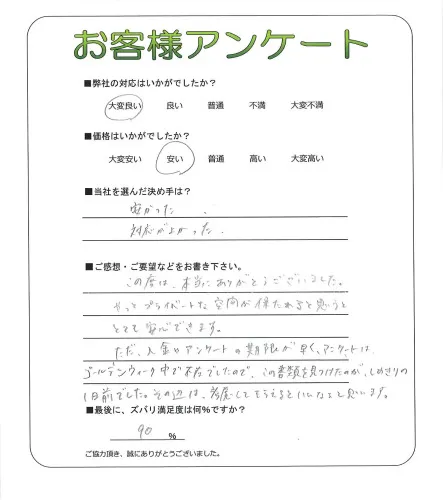 お客様アンケート
■弊社の対応はいかがでしたか？
大変良い 良い 普通 不満 大変不満
■価格はいかがでしたか？
大変安い 安い 普通 高い 大変高い
■当社を選んだ決め手は？
安かった 、
対応が よかった 。
■ご感想・ご要望などをお書き下さい。
この度は、本当にありがとうございました。
やっと プライベートな 空間が 保たれると思うと
とても 安心できます。
ただ、入金やアンケートの期限が 早く、アンケートは
ゴールデンウィーク中で不在でしたので、この書類を見つけたのが、しめきりの
1日前でした。その辺は、考慮してもらえるといいなと思います。
■最後に、ズバリ満足度は何%ですか？
90 %
ご協力頂き、誠にありがとうございました。